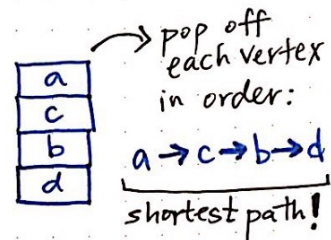 pop off
each vertex
in order:
a
c
b
d
a → c → b → d
shortest path!